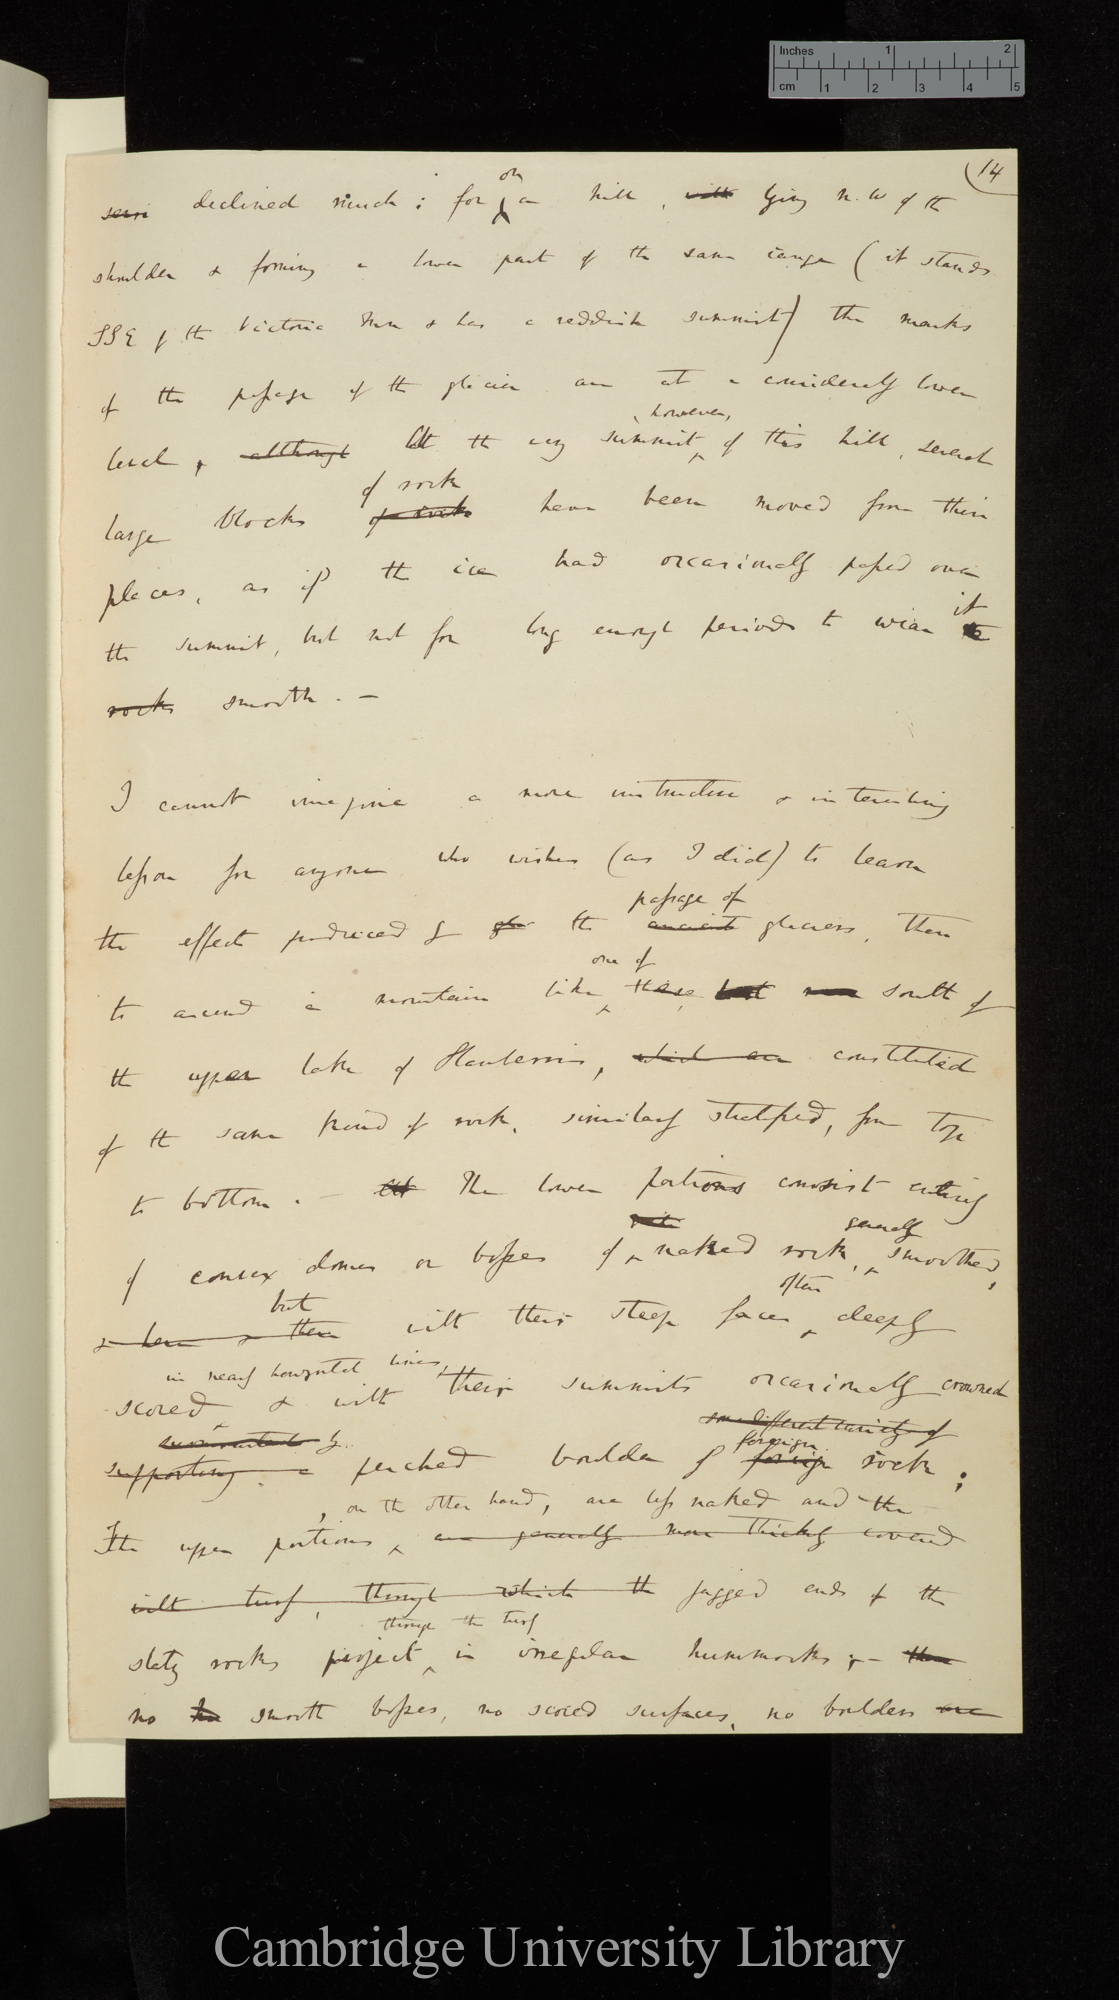 Inches 1 2
cm 1 2 3 4 5
14
on
declined much; for a hill, with lying N.W of the
shoulder & forming a lower part of the same range (it stands
SSE of the Victoria Inn & has a reddish summit) the marks
of the passage of the glacier are at a considerably lower
however,
level, although At the very summit of this hill, several
of rock
large blocks of rock have been moved from their
places, as if the ice had occasionally passed over
it
the summit, but not for long enough periods to wear the
rocks smooth. —
I cannot imagine a more instructive & interesting
lesson for anyone who wishes (as I did) to learn
passage of
the effects produced by the ancient glaciers, than
one of
to ascend a mountain like these south of
the upper lake of Llanberris, which are constituted
of the same kind of rock, similarly stratified, from top
to bottom. — The lower portions consist entirely
generally
of convex domes or bosses of naked rock, smoothed,
often
but
& here & there with their steep faces deeply
in nearly horizontal lines,
scored & with their summits occasionally crowned
some different variety of
surmounted by foreign
supporting a perched boulder of foreign rock;
, on the other hand, are less naked and the
The upper portions are generally more thickly covered
with turf, through which the jagged ends of the
through the turf
slaty rocks project in irregular hummocks; —
no smooth bosses, no scored surfaces, no boulders are
Cambridge University Library